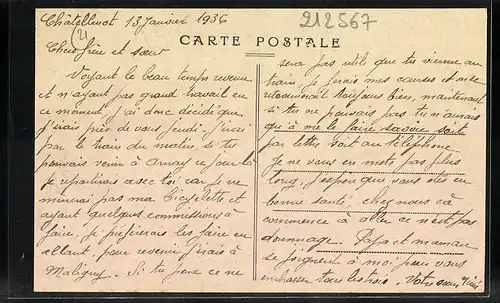 Châtellenot 13 Janvier 1936
212567
CARTE POSTALE
Chers frère et sœur
Voyant le beau temps revenu
et n'ayant pas grand travail en
ce moment j'ai donc décidé que
j'irais près de vous jeudi. J'irai
par le train du matin, si tu
pouvais venir à Arnay ce jour là
je repartirais avec toi car je ne
mènerai pas ma bicyclette et
ayant quelques commissions à
faire, je préférerais les faire en
allant, pour revenir j'irais à
Maligny. Si tu ne ce ne
sera pas utile que tu vienne au
train, je ferais mes courses et on se
retrouverait toujours bien, maintenant
si tu ne pouvais pas tu n'aurais
qu'à me le faire savoir soit
par lettre soit au téléphone
Je ne vous en mets pas plus
long, j'espère que vous êtes en
bonne santé, chez nous ça
commence à aller ce n'est pas
dommage. Papa et maman
se joignent à moi pour vous
embrasser tous les trois. Votre sœur